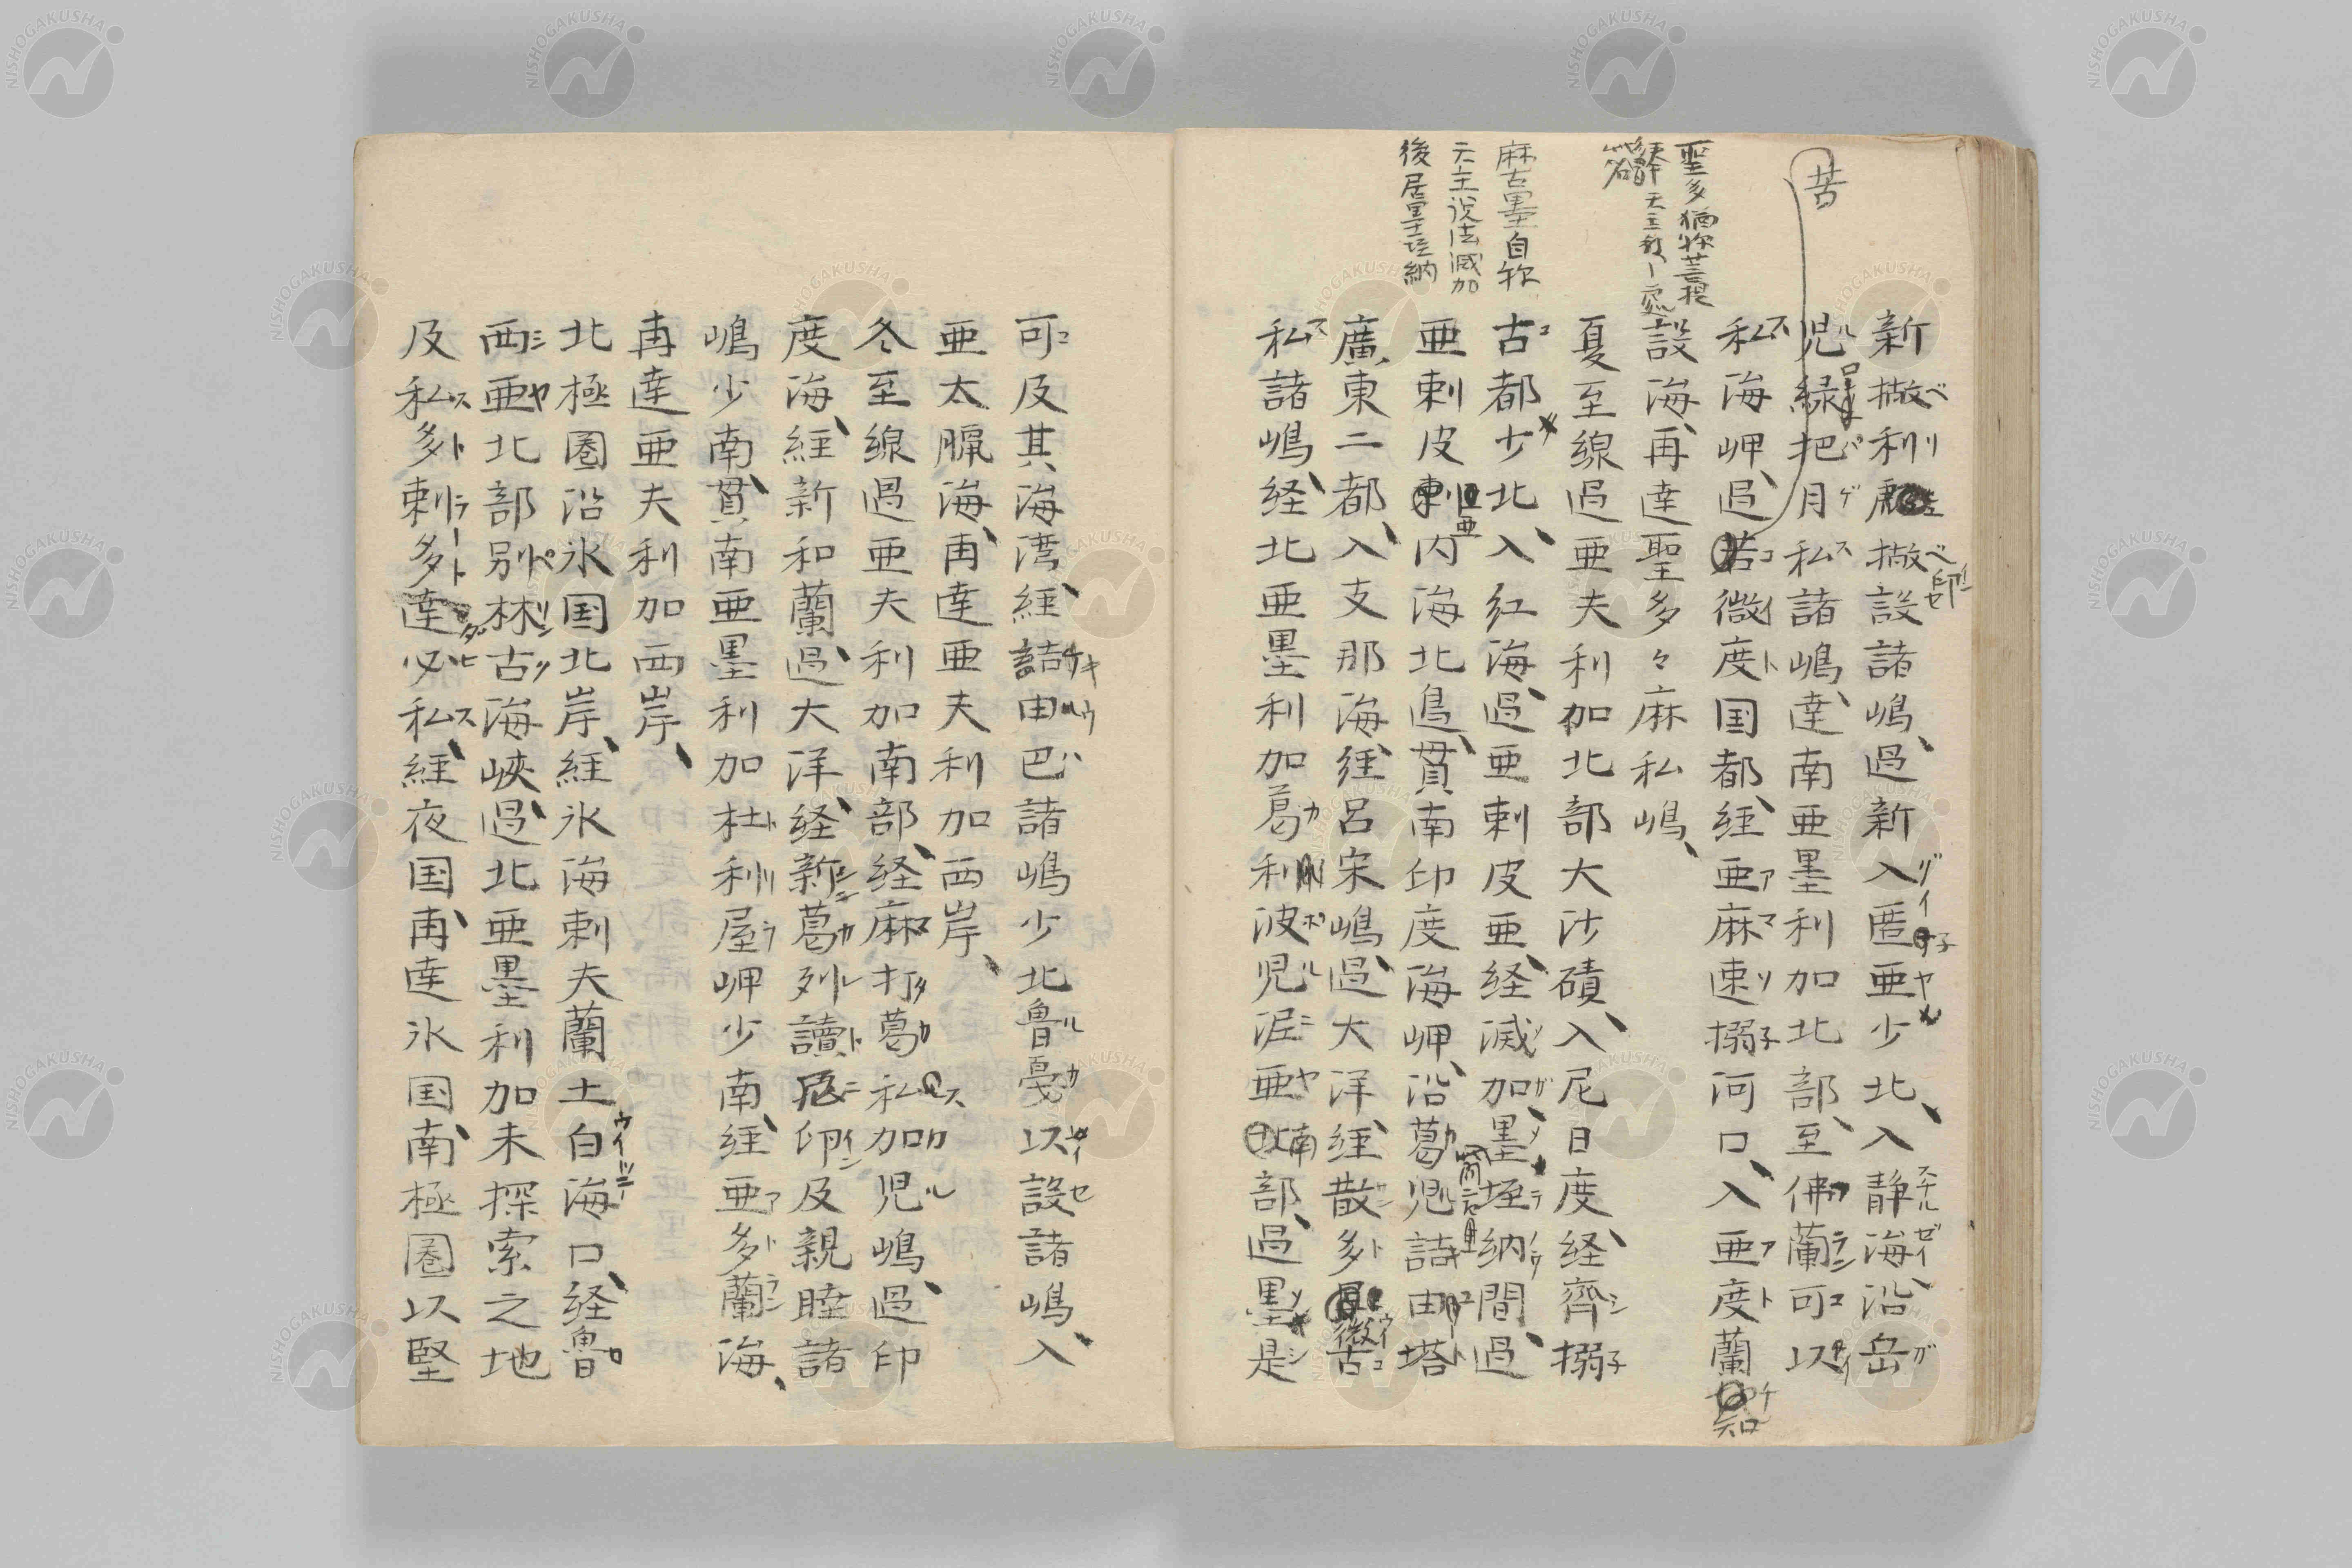 苦
聖多猶称菩提
天主教
麻古墨自称
天主説法滅加
後居墨埊納
新撒利撒設諸嶋、過新入匿亜少北、入静海、沿岳
児緑把月私諸嶋、達南亜墨利加北部、至佛蘭可以
私海岬、過苦微度国都、経亜麻速搦河口、入亜度蘭知
設海、再達聖多々麻私嶋、
夏至線過亜夫利加北部大沙磧、入尼日度、経齊搦
古都少北、入紅海、過亜剌皮亜、経滅加、墨埊納間、過
亜剌皮亜内海北邉、貫南印度海岬、沿葛児詰由塔
廣東二都、入支那海、経呂宋嶋、過大洋、経散多微古
私諸嶋、経北亜墨利加葛利波児泥亜南部、過墨是
可及其海湾、経詰由巴諸嶋少北魯戞以設諸嶋、入
亜太臘海、再達亜夫利加西岸、
冬至線過亜夫利加南部、経麻打葛私加児嶋、過印
度海、経新和蘭、過大洋、経新葛列讀尼印及親睦諸
嶋少南、貫南亜墨利加杜利屋岬少南、経亜多蘭海、
再達亜夫利加西岸、
北極圏沿氷国北岸、経氷海剌夫蘭土白海口、経魯
西亜北部別林古海峡、過北亜墨利加未探索之地
及私多剌多達必私、経夜国、再達氷国南、極圏以堅